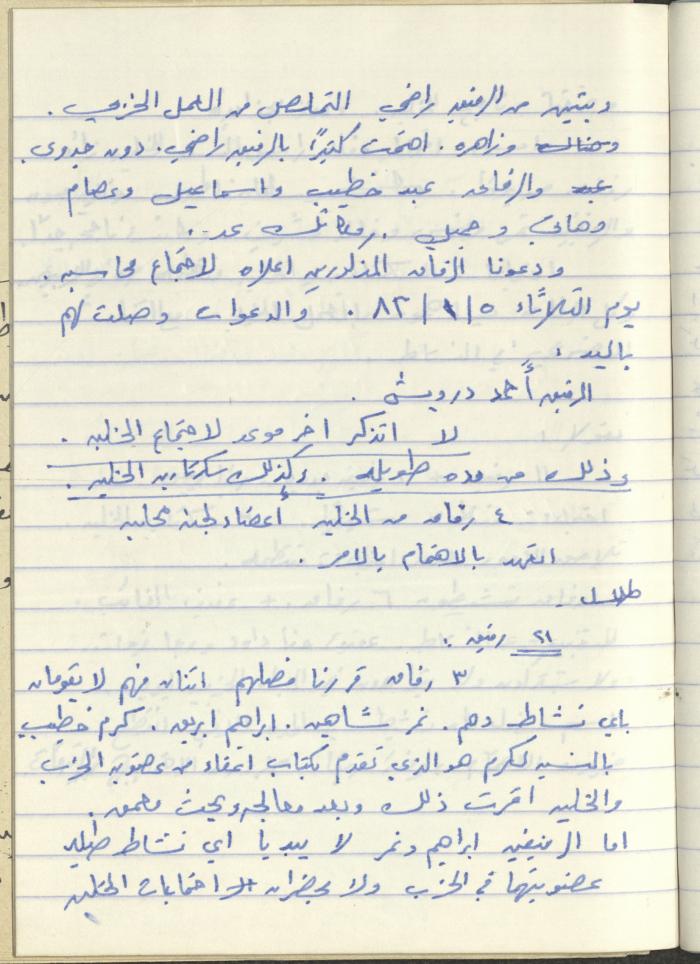 ويتبين من الرفيق راضي التملص من العمل الحزبي .
وهنالك وزاهره . اهتمت كثيراً بالرفيق راضي . دون جدوى .
عبد والرفاق عبد خطيب واسماعيل وعصام
وهاني وجميل .
ودعونا الرفاق المذكورين اعلاه لاجتماع محاسبه .
يوم الثلاثاء ٥/١/٨٢ . والدعوات وصلت لهم
باليد .
الرفيق أحمد درويش .
لا اتذكر اخر موعد لاجتماع الخليه .
وذلك من مده طويله . وكذلك سكرتارية الخليه .
٤ رفاق من الخليه أعضاء لجنه محليه
اتعهد بالاهتمام بالامر .
طلال .
٢١ رفيق :
٣ رفاق قررنا فصلهم اثنان منهم لا يقومان
باي نشاط وهم . نمر شاهين . ابراهيم ابريق . كرم خطيب
بالنسبه لكرم هو الذي تقدم بكتاب اعفاء من عضوية الحزب
والخليه اقرت ذلك وبعد معالجه وبحث معمق .
اما الرفيقين ابراهيم ونمر لا يبديا أي نشاط طيله
عضويتهما في الحزب ولا يحضران اجتماعات الخليه